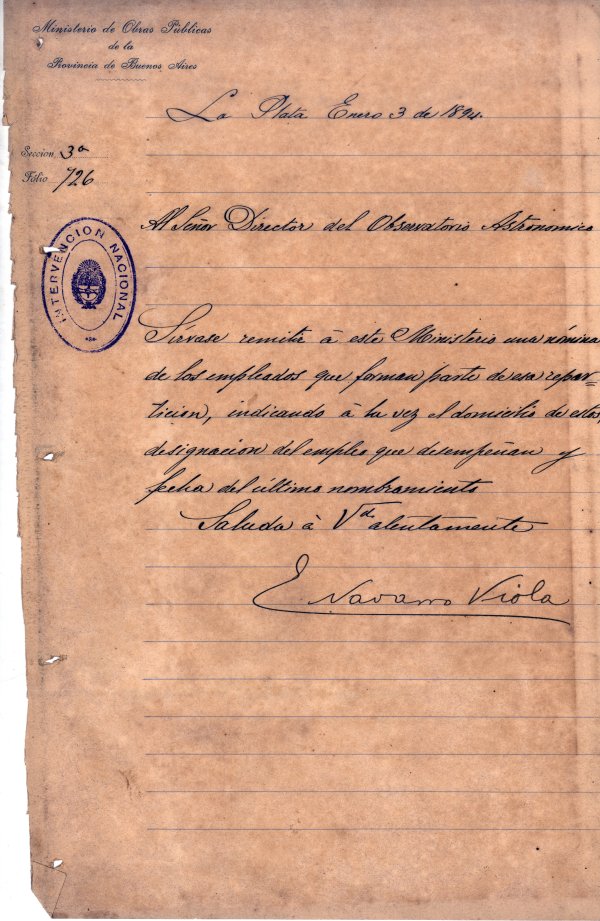 Ministerio de Obras Públicas
de la
Provincia de Buenos Aires
La Plata Enero 3 de 1894.
Seccion 3a
Fólio 726
INTERVENCION NACIONAL
Al Señor Director del Observatorio Astronomico
Sírvase remitir á este Ministerio una nómina
de los empleados que forman parte de esa repar-
ticion, indicando á la vez el domicilio de estos,
designacion del empleo que desempeñan y
fecha del último nombramiento
Saluda á Vd. atentamente
E Navarro Viola